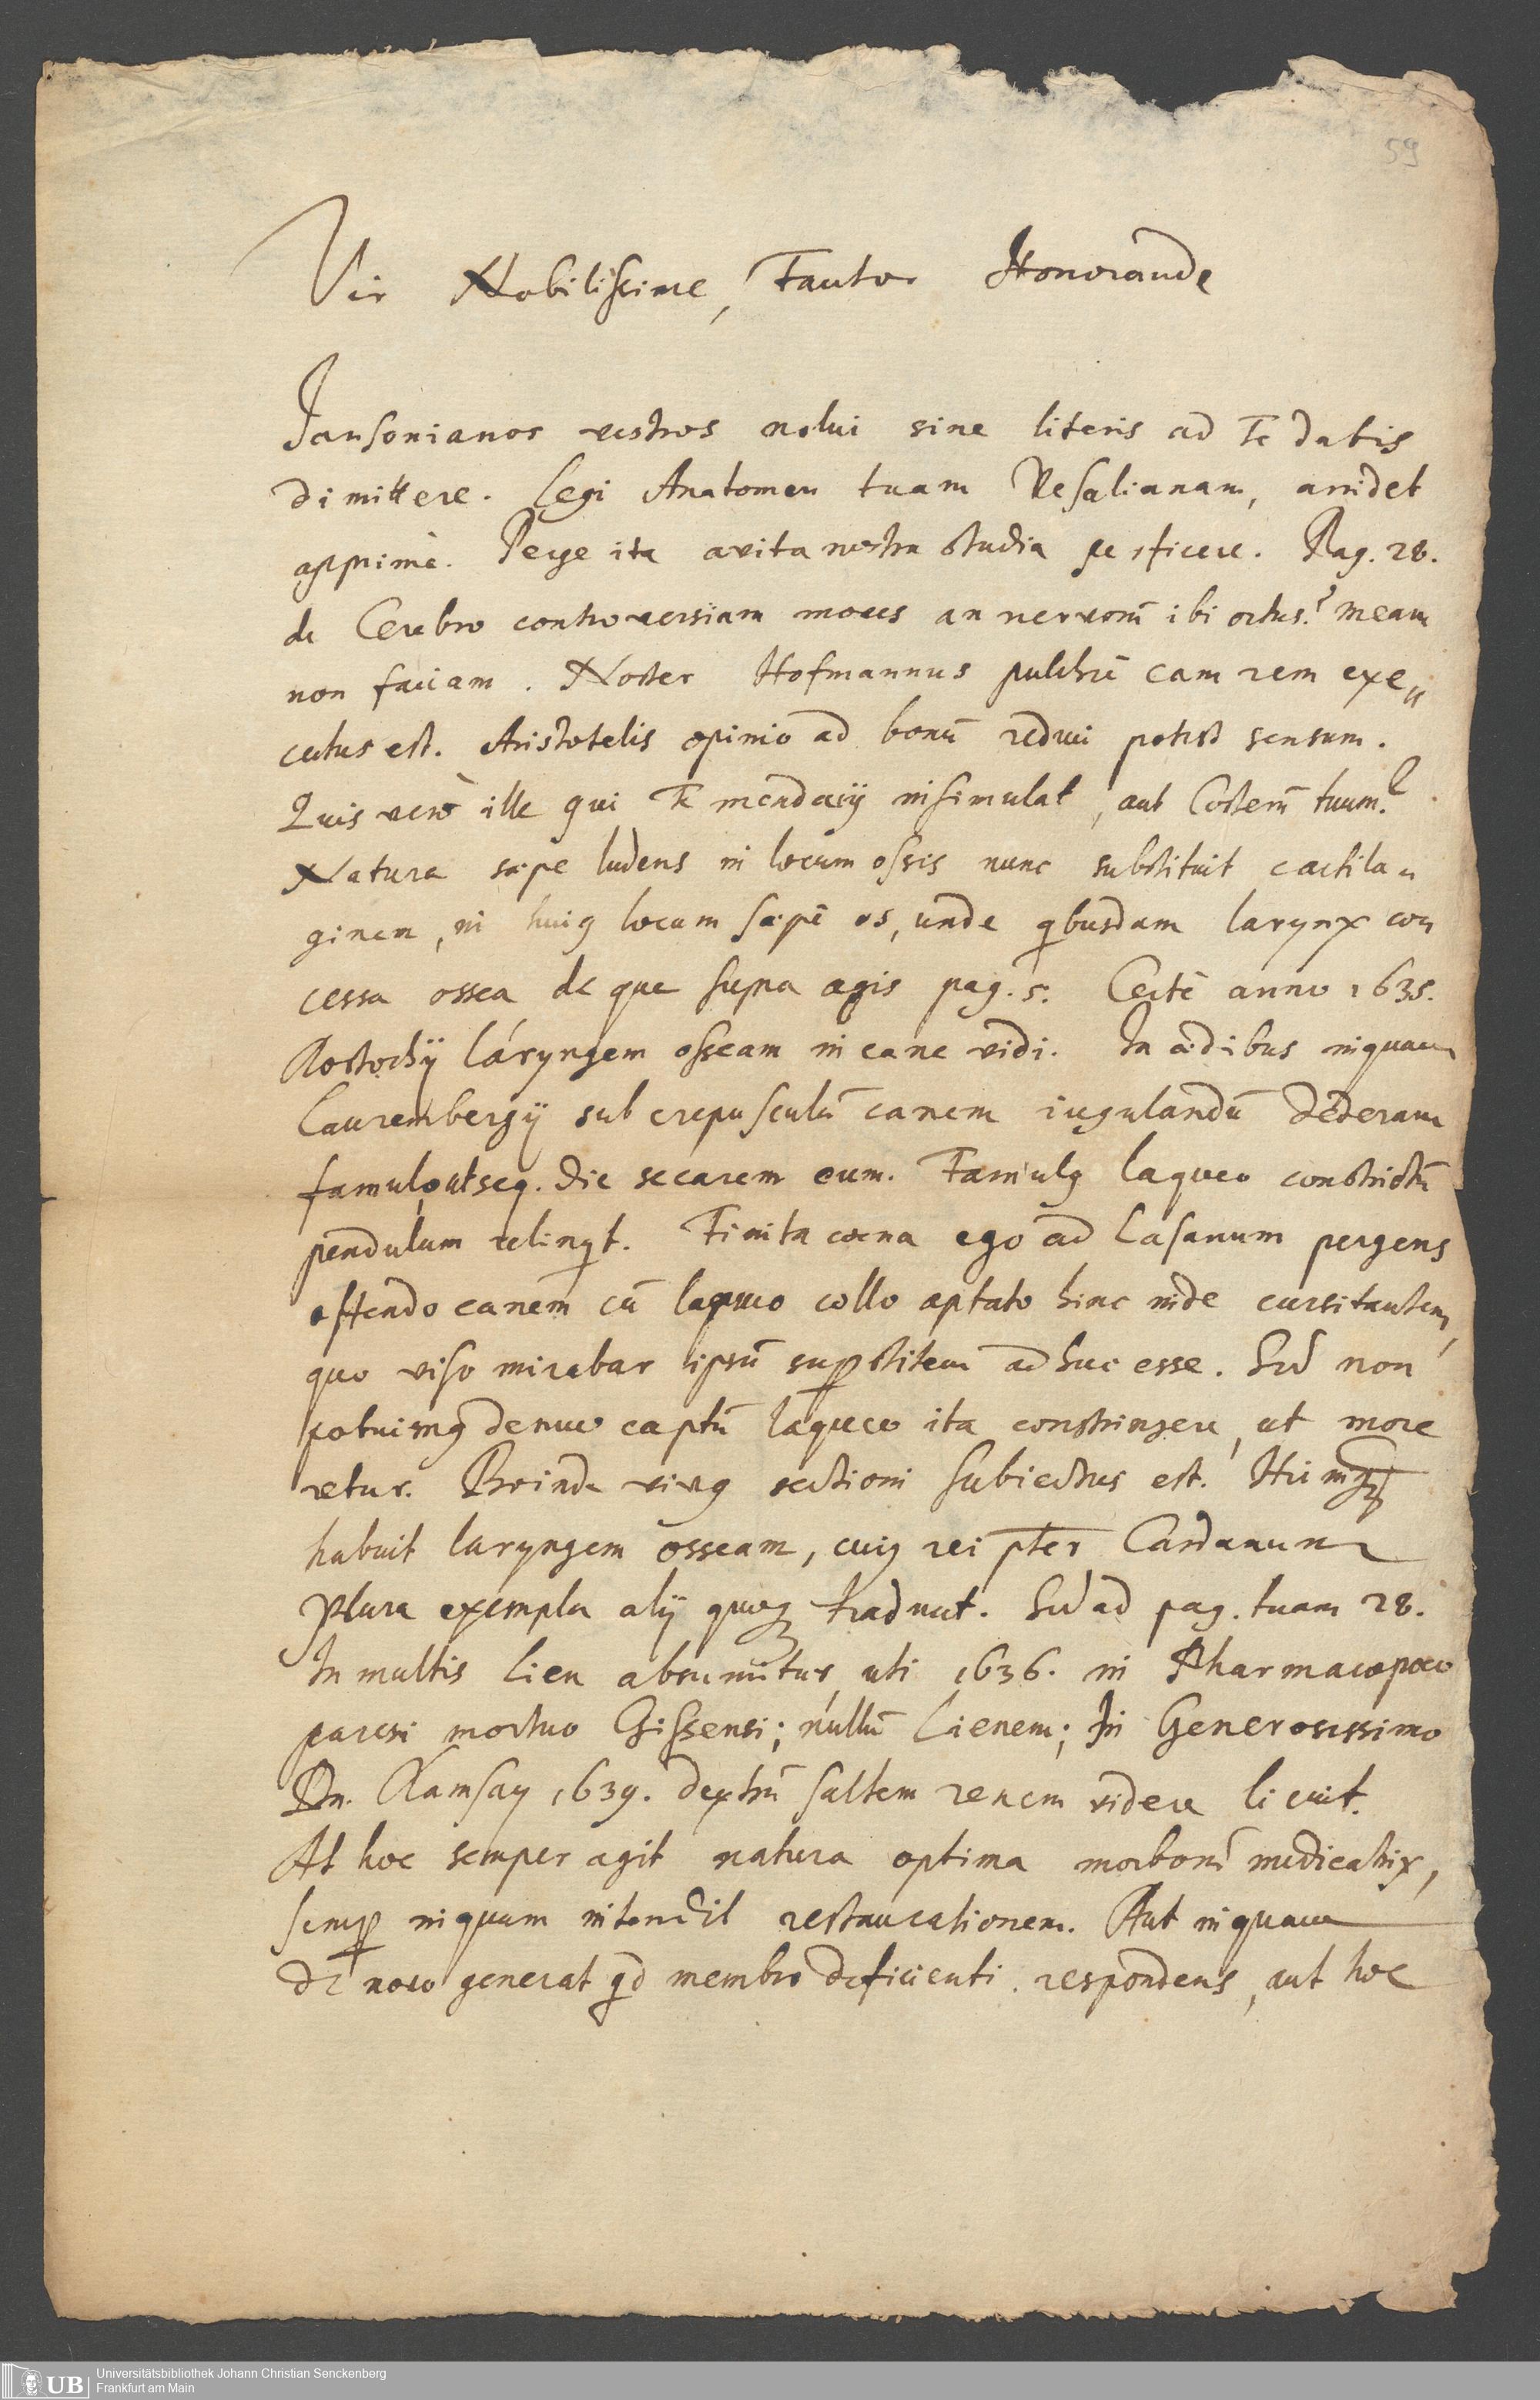 59
Vir Nobilissime, Fautor Honorande
Jansonianos vestros nolui sine literis ad Te datis
dimittere. Legi Anatomen tuam Vesalianam, arridet
apprimè. Perge ita avita nostra studia perficere. Pag. 28.
de Cerebro controversiam moves an nervorũ ibi ortus? meam
non faciam. Noster Hofmannus pulchrè eam rem exe„
cutus est. Aristotelis opinio ad bonũ reduci potest sensum.
Quis verò ille qui Te mendacij insimulat, aut Costerũ tuum?
Natura sæpe ludens in locum ossis nunc substituit cartila„
ginem, in huiꝰ locum sæpè os, unde qbusdam larynx con
cessa ossea de qua supra agis pag. 5. Certè anno 1635.
Rostochij láryngem osseam in cane vidi. In ædibus inquam
Laurembergij sub crepusculũ canem iugulandũ dederam
famulo, ut seq. die secarem eum. Famulꝰ laqueo constrictũ
pendulum relinqt. Finita cœna ego ad Lasanum pergens
offendo canem cũ laqueo collo aptato hinc inde cursitantem,
quo viso mirabar ipsũ suꝑstitem adhuc esse. Sed non
potuimꝰ denuo captũ laqueo ita constringere, ut more
retur. Proinde vivꝰ sectioni subiectus est. Hicq
habuit laryngem osseam, cuiꝰ rei pter Cardanum
plura exempla alij quoqꝫ tradunt. Sed ad pag. tuam 28.
In multis lien absumitur, uti 1636. in Pharmacopœo
paresi mortuo Gissensi; nullũ Lienem; In Generosissimo
Dn. Ramsay 1639. dextrũ saltem renem videre licuit.
At hoc semper agit natura optima morborũ medicatrix,
semꝑ inquam intendit restaurationem. Aut inquam
de novo generat qd membro deficienti respondens, aut hoc
Universitätsbibliothek Johann Christian Senckenberg
Frankfurt am Main
UB